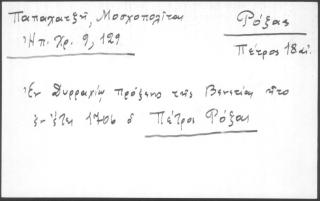 Παπαχατζῆ, Μοσχοπολῖται
Ἠπ. Χρ. 9, 129
Ρόζας
Πέτρος 18 αἰ.
Ἐν Δυρραχίῳ πρόξενο τῆς Βενετίας ἦτο
ἐν ἔτει 1706 ὁ Πέτρος Ρόζας